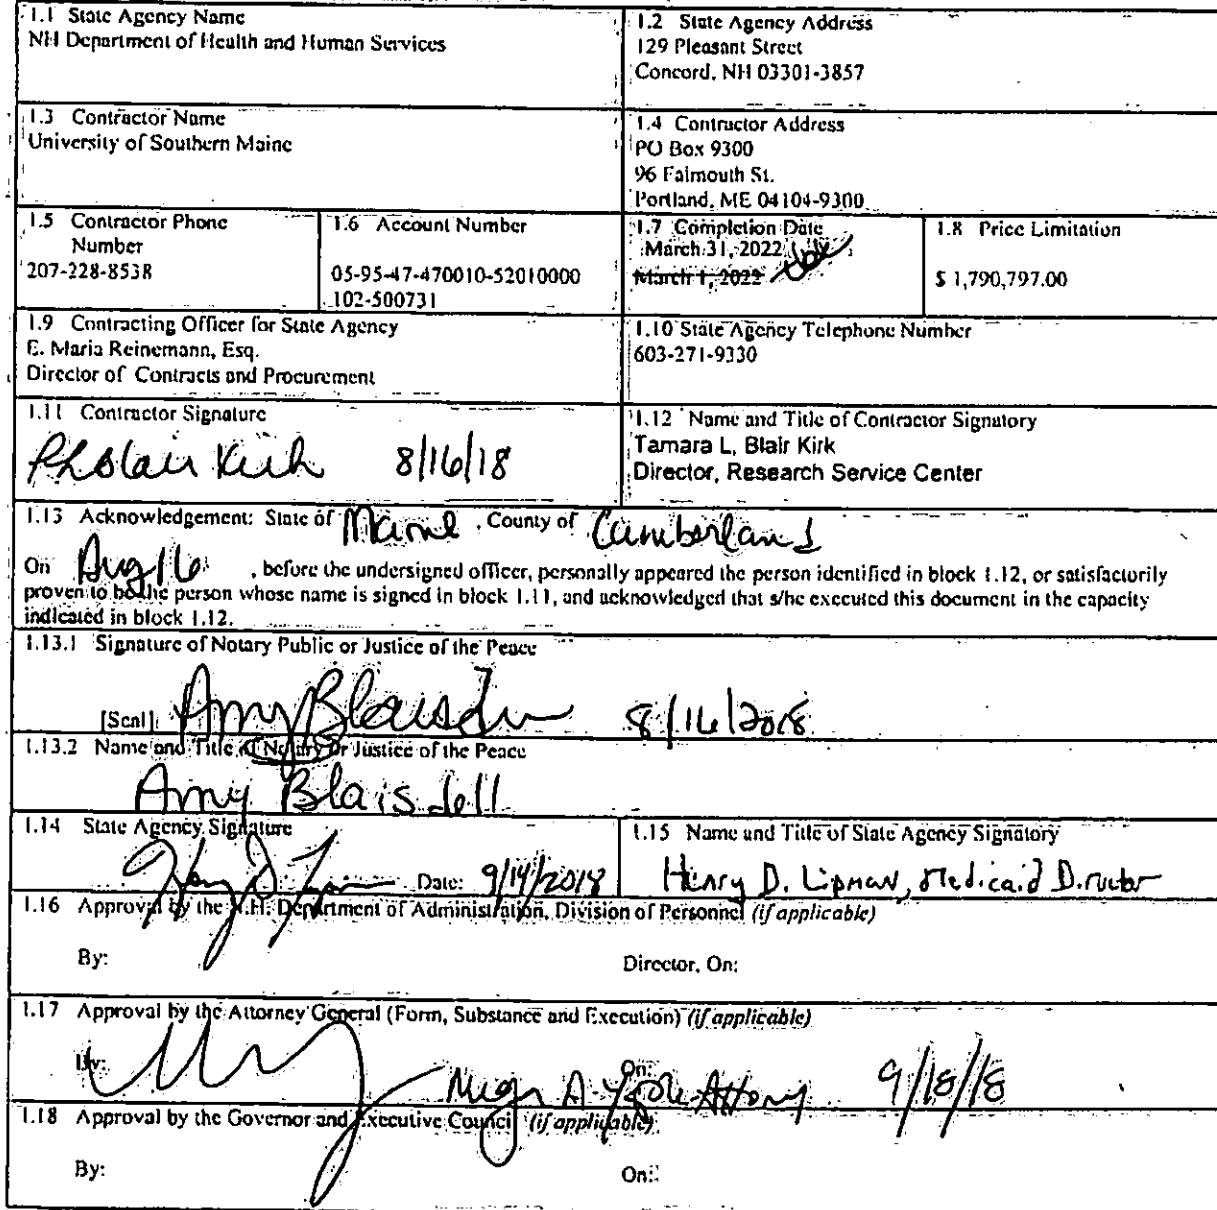 1.1 State Agency Name
NH Department of Health and Human Services
1.2 State Agency Address
129 Pleasant Street
Concord, NH 03301-3857
1.3 Contractor Name
University of Southern Maine
1.4 Contractor Address
PO Box 9300
96 Falmouth St.
Portland, ME 04104-9300
1.5 Contractor Phone
Number
207-228-8538
1.6 Account Number
05-95-47-470010-52010000
102-500731
1.7 Completion Date
March 31, 2022
March 1, 2022
1.8 Price Limitation
$ 1,790,797.00
1.9 Contracting Officer for State Agency
E. Maria Reinemann, Esq.
Director of Contracts and Procurement
1.10 State Agency Telephone Number
603-271-9330
1.11 Contractor Signature
Blair Kirk 8/16/18
1.12 Name and Title of Contractor Signatory
Tamara L, Blair Kirk
Director, Research Service Center
1.13 Acknowledgement: State of Maine , County of Cumberland
On Aug 16 , before the undersigned officer, personally appeared the person identified in block 1.12, or satisfactorily
proven to be the person whose name is signed in block 1.11, and acknowledged that s/he executed this document in the capacity
indicated in block 1.12.
1.13.1 Signature of Notary Public or Justice of the Peace
[Seal] Amy Blaisdell 8/16/2018
1.13.2 Name and Title of Notary or Justice of the Peace
Amy Blaisdell
1.14 State Agency Signature
Date: 9/14/2018
1.15 Name and Title of State Agency Signatory
Henry D. Lipman, Medicaid Director
1.16 Approval by the N.H. Department of Administration, Division of Personnel (if applicable)
By: Director, On:
1.17 Approval by the Attorney General (Form, Substance and Execution) (if applicable)
By: On: A. Attorney 9/18/18
1.18 Approval by the Governor and Executive Council (if applicable)
By: On: